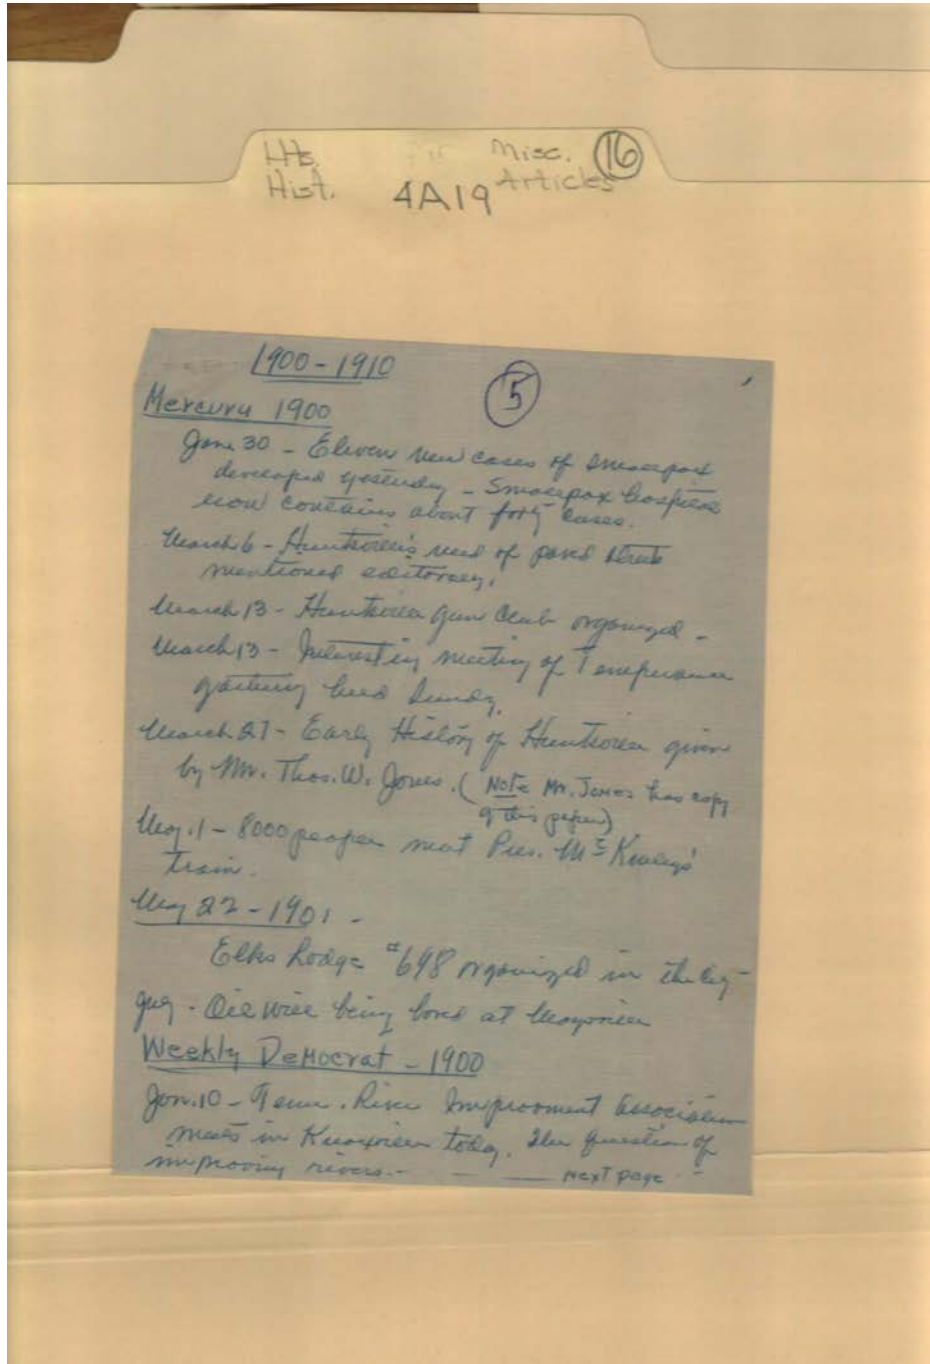 Hts. Misc. 16
Hist. 4A19 Articles
1900 - 1910
5
Mercury 1900
Jan. 30 - Eleven new cases of smallpox
developed yesterday - Smallpox hospital
now contains about forty cases.
March 6 - Huntsville's need of paved streets
mentioned editorially.
March 13 - Huntsville Gun Club organized -
March 13 - Interesting meeting of Temperance
held Sunday.
March 27 - Early History of Huntsville given
by Mr. Thos. W. Jones. (Note Mr. Jones has copy
of this paper)
May. 1 - 8000 people meet Pres. McKinley's
train.
May 22 - 1901 -
Elks Lodge #698 organized in the city -
Oil well being bored at Maysville
Weekly Democrat - 1900
Jan. 10 - Tenn. River Improvment Association
meets in Knoxville today. The question of
improving rivers. - - next page -